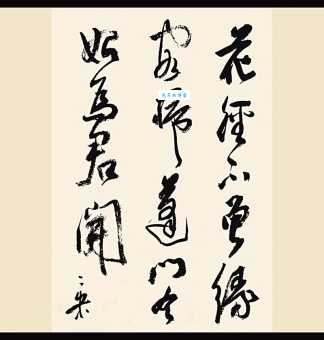 花徑不曾緣
客掃蓬門今
始為君開